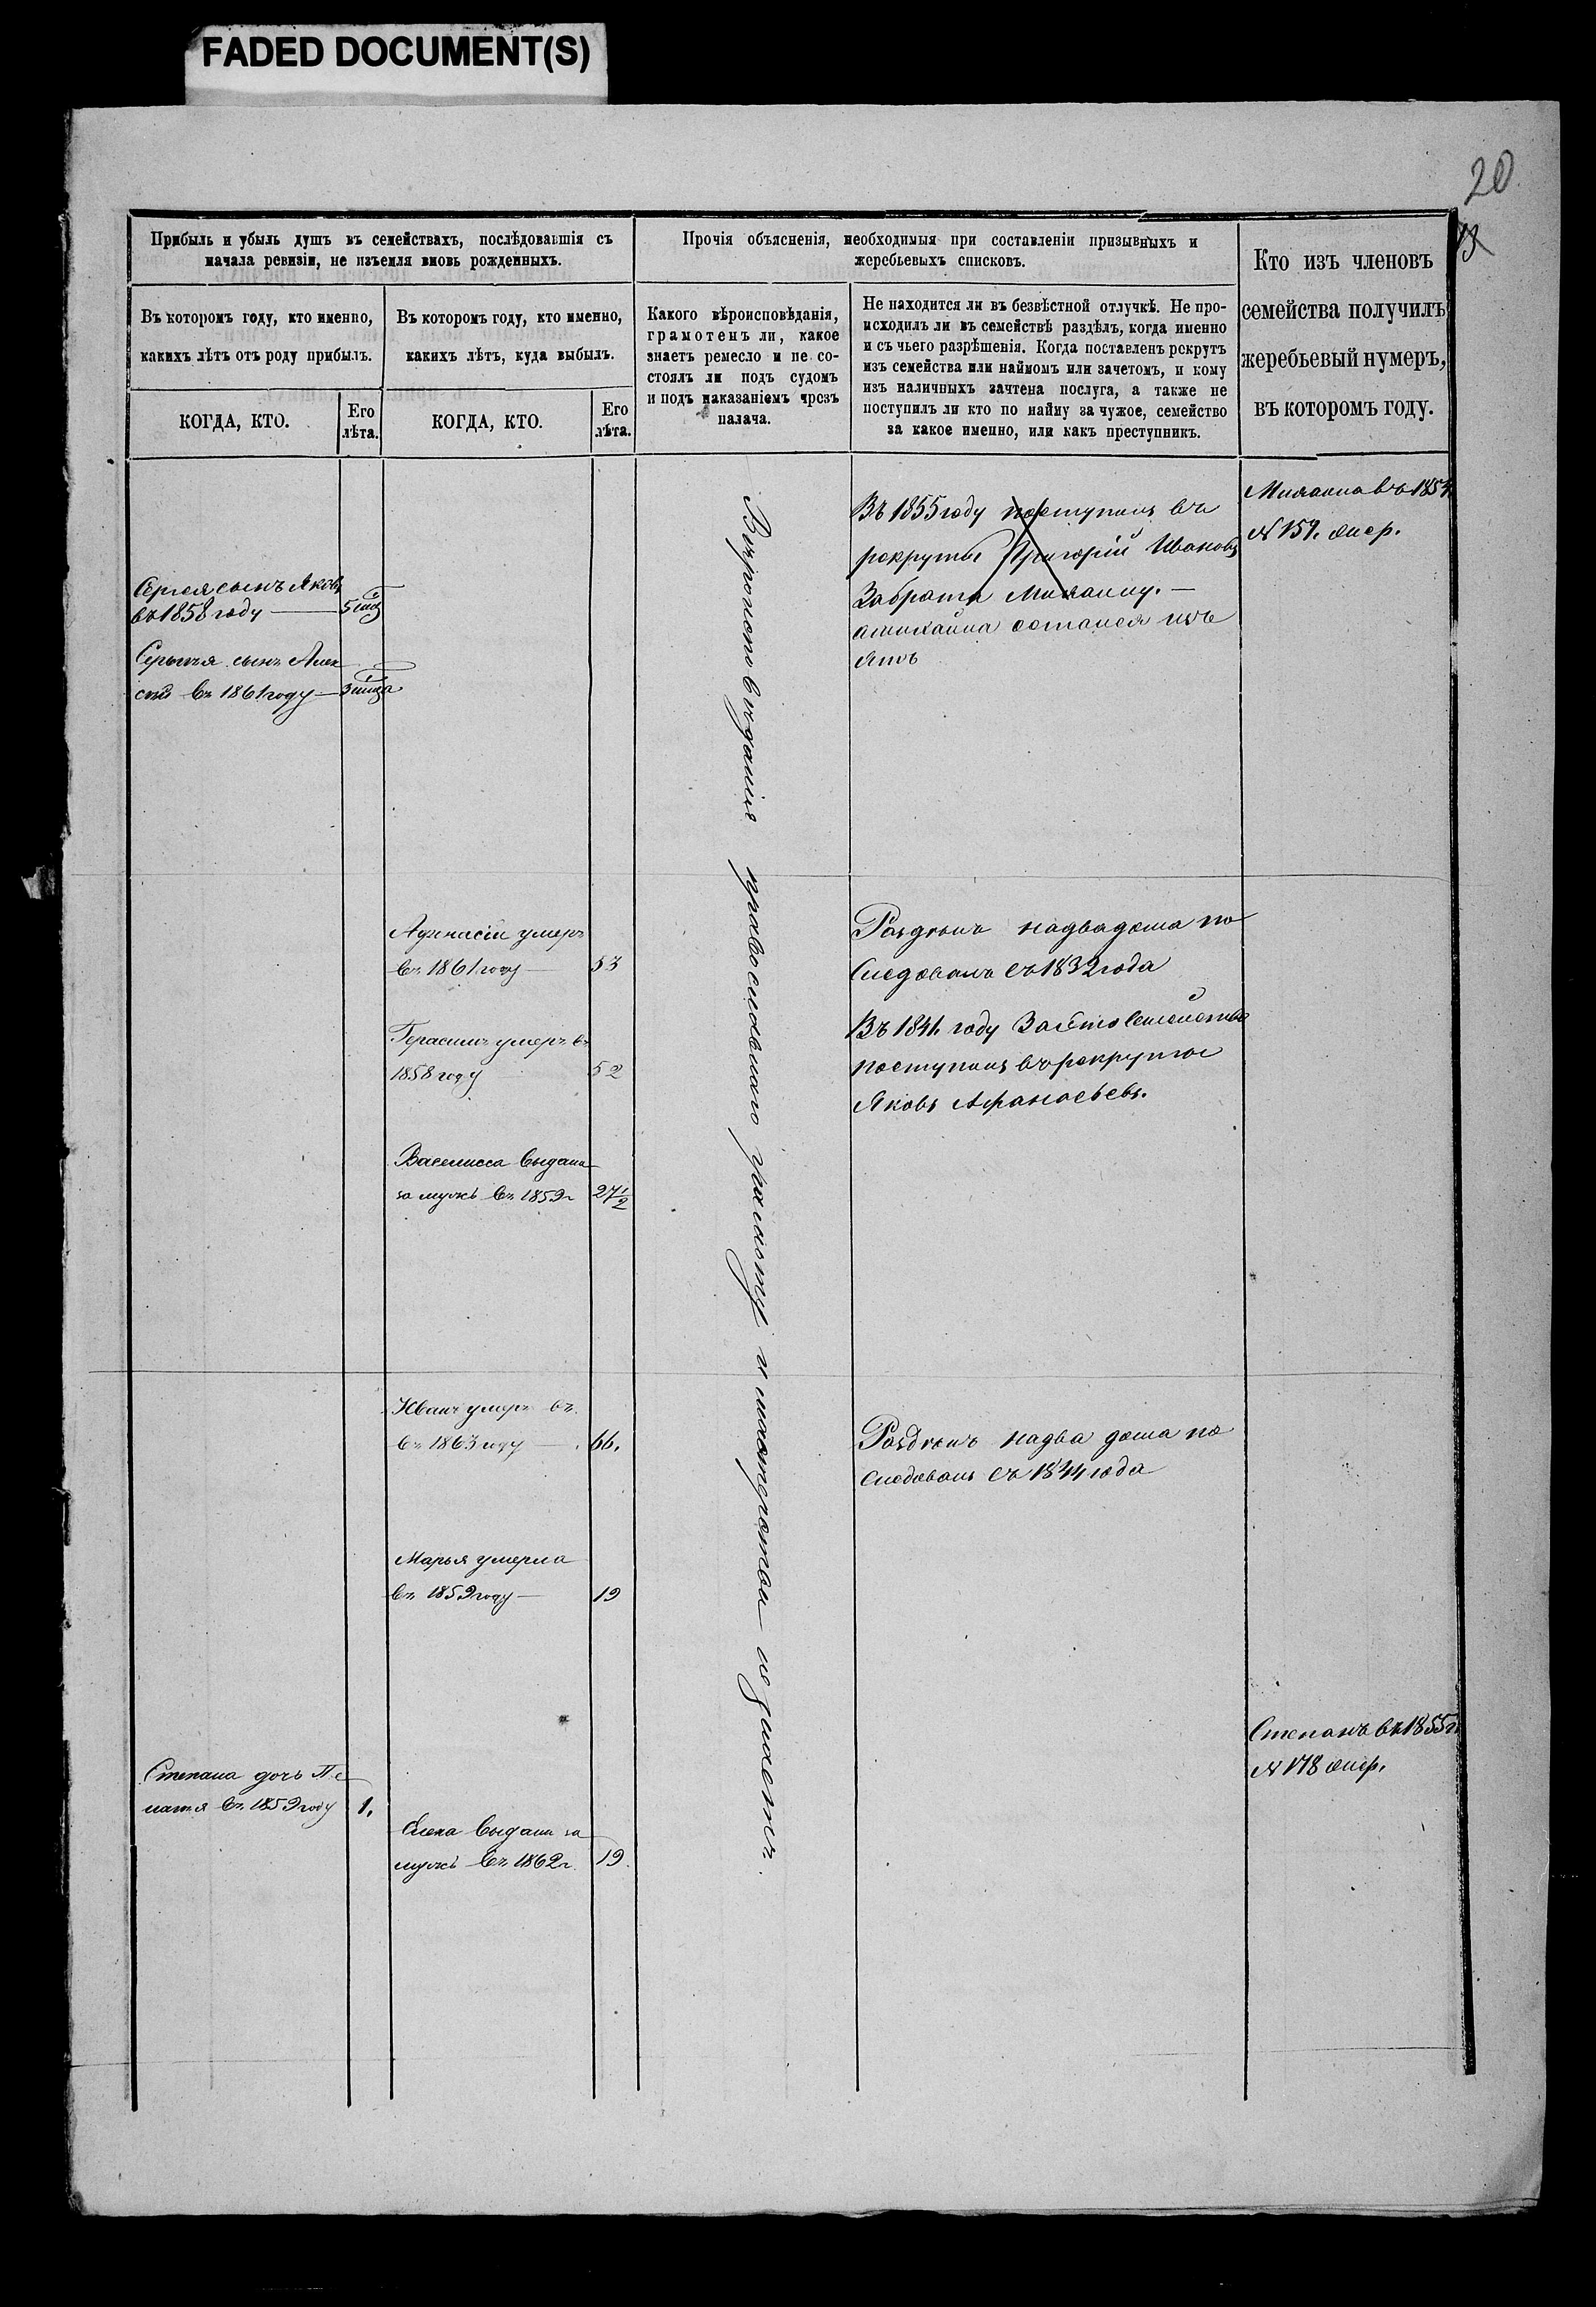 FADED DOCUMENT(S)
20
13
Прибыль и убыль душъ въ семействахъ, послѣдовавшія съ
начала ревизіи, не изъемля вновь рожденныхъ.
Въ которомъ году, кто именно,
какихъ лѣтъ отъ роду прибылъ.
КОГДА, КТО.
Его
лѣта.
Въ которомъ году, кто именно,
какихъ лѣтъ, куда выбылъ.
КОГДА, КТО.
Его
лѣта.
Прочія объясненія, необходимыя при составленіи призывныхъ и
жеребьевыхъ списковъ.
Какого вѣроисповѣданія,
грамотенъ ли, какое
знаетъ ремесло и не со-
стоялъ ли подъ судомъ
и подъ наказаніемъ чрезъ
палача.
Не находится ли въ безвѣстной отлучкѣ. Не про-
исходилъ ли въ семействѣ раздѣлъ, когда именно
и съ чьего разрѣшенія. Когда поставленъ рекрутъ
изъ семейства или наймомъ или зачетомъ, и кому
изъ наличныхъ зачтена послуга, а также не
поступилъ ли кто по найму за чужое, семейство
за какое именно, или какъ преступникъ.
Кто изъ членовъ
семейства получилъ
жеребьевый нумеръ,
въ которомъ году.
Сергея сынъ Яковъ
въ 1858 году
5
сынъ Алек
сѣй въ 1861 году
3
Афанасій умеръ
въ 1861 году
53
Герасимъ умеръ въ
1858 году
52
Василисса выдана
за мужъ въ 1859 г
27 1/2
Иванъ умеръ въ
въ 1863 году
66.
Марья умерла
въ 1859 году
19
Степана дочь Пе
лагея въ 1859 году
1.
Елена выдана за
мужъ въ 1862 г.
19.
Вѣроисповѣданія православнаго грамоту и мастерства не знаетъ.
Въ 1855 году поступилъ въ
рекруты Григорій Ивановъ
За брата
остался
Раздѣлъ на два дома по
слѣдовалъ въ 1832 года
Въ 1841. году За это семейство
поступилъ въ рекруты
Яковъ Афанасьевъ.
Раздѣлъ на два дома по
слѣдовалъ въ 1844 года
въ 1854
N 159. жер.
Степанъ въ 1855 г.
N 178 жер.